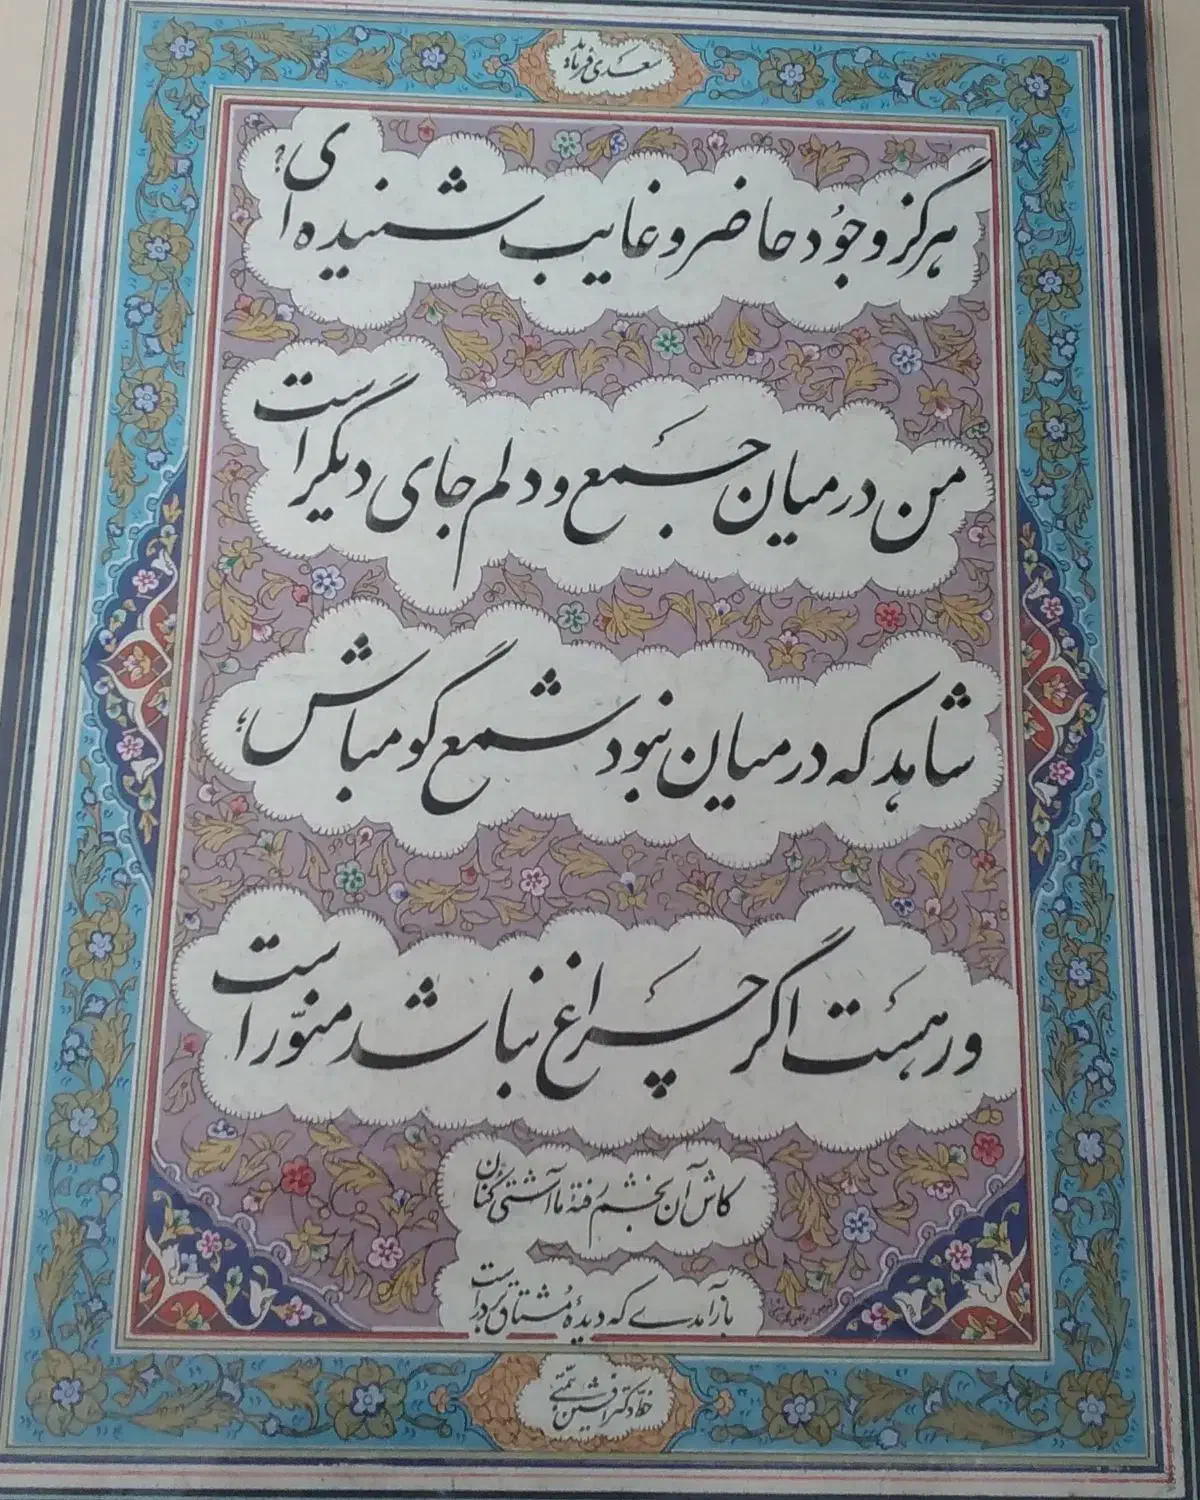 سعدی فرماید
هرگز وجود حاضر و غایب شنیده‌ای؟
من در میان جمع و دلم جای دیگر است
شاهد که در میان نبود شمع گو مباش؛
ور هست اگر چراغ نباشد منوّر است
کاش آن بخشم رفتهٔ ما آشتی کنان
بازآمدے که دیدهٔ مُشتاق بر در است
خط دکتر افشین